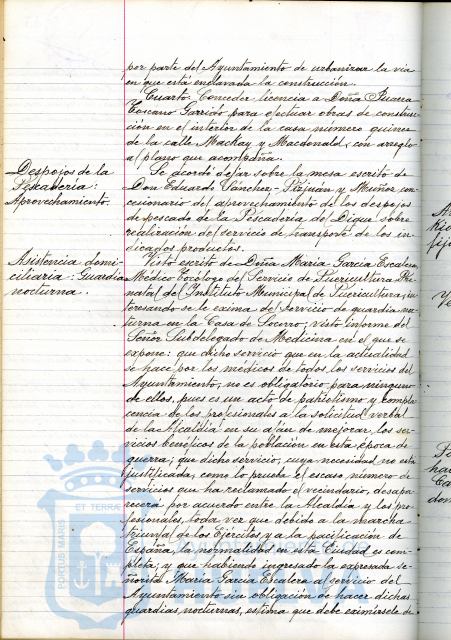 por parte del Ayuntamiento de urbanizar la via
en que está enclavada la construcción.
Cuarto. Conceder licencia a Doña Juana
Toscano Garrido para efectuar obras de construc-
ción en el interior de la casa número quince
de la calle Mackay y Macdonald, con arreglo
al plano que acompaña.
Despojos de la
Pescadería:
Aprovechamiento.
Se acordó dejar sobre la mesa escrito de
Don Eduardo Sánchez-Sirjuán y Muñoz con-
cesionario del aprovechamiento de los despojos
de pescado de la Pescadería del Dique sobre
realización del servicio de transporte de los in-
dicados productos.
Asistencia domi-
ciliaria: Guardia
nocturna.
Visto escrito de Doña Maria Garcia Escalera,
Medico Tocologo del Servicio de Puericultura Pre-
natal del Instituto Municipal de Puericultura, in-
teresando se le exima del servicio de guardia noc-
turna en la Casa de Socorro; visto informe del
Señor Subdelegado de Medicina en el que se
expone: que dicho servicio que en la actualidad
se hace por los médicos de todos los servicios del
Ayuntamiento, no es obligatorio para ninguno
de ellos, pues es un acto de patriotismo y compla-
cencia de los profesionales a la solicitud verbal
de la Alcaldia en su afán de mejorar los ser-
vicios benéficos de la población en esta época de
guerra; que dicho servicio, cuya necesidad no está
justificada, como lo prueba el escaso número de
servicios que ha reclamado el vecindario, desapa-
recerá por acuerdo entre la Alcaldia y los pro-
fesionales, toda vez que debido a la marcha
triunfal de los Ejércitos y a la pacificación de
España, la normalidad en esta Ciudad es com-
pleta; y que habiendo ingresado la expresada se-
ñorita Maria Garcia Escalera al servicio del
Ayuntamiento sin obligación de hacer dichas
guardias nocturnas, estima que debe eximírsele de
ET TERRAE
PORTUS MARIS